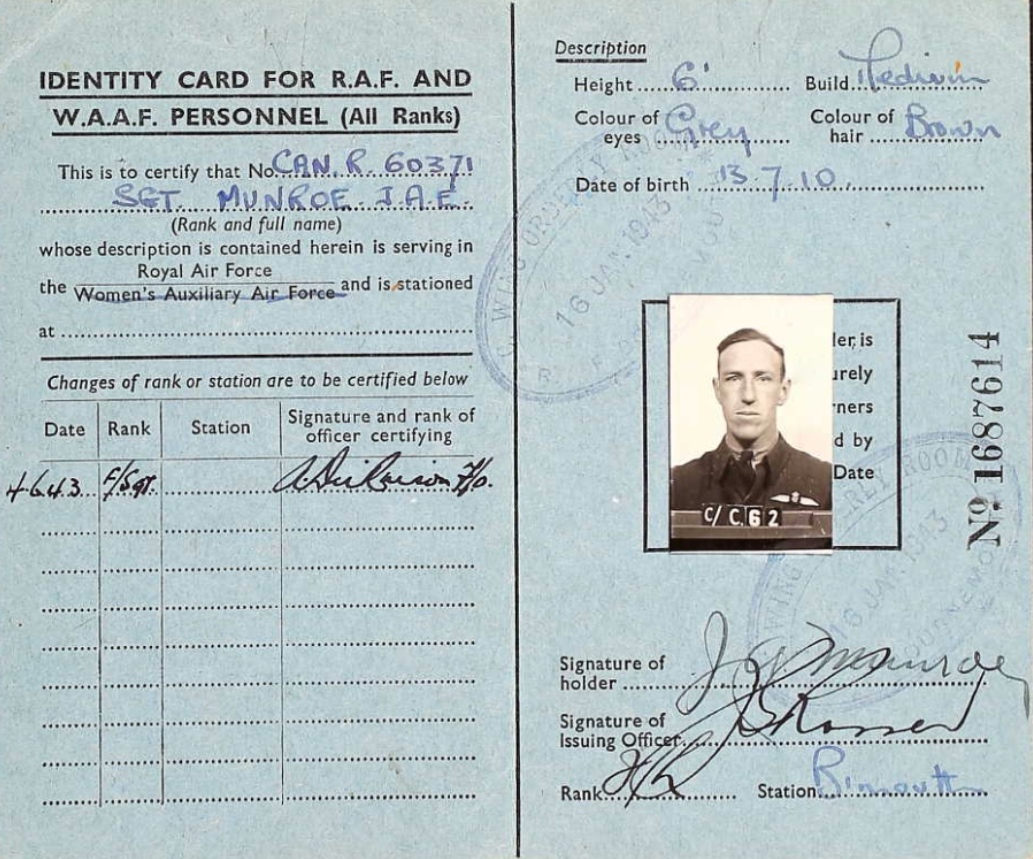 IDENTITY CARD FOR R.A.F. AND
W.A.A.F. PERSONNEL (All Ranks)
This is to certify that No. CAN. R. 60371
SGT. MUNROE J.A.E.
(Rank and full name)
whose description is contained herein is serving in
the Royal Air Force
Women's Auxiliary Air Force and is stationed
at
Changes of rank or station are to be certified below
Date Rank Station Signature and rank of
officer certifying
4.6.43. F/Sgt. F/O.
Description
Height 6' Build Medium
Colour of eyes Grey Colour of hair Brown
Date of birth 13.7.10.
WING ORDERLY ROOM
16 JAN 1943
ler is
urely
ners
d by
Date
C/ C.62
No. 1687614
WING ORDERLY ROOM
16 JAN 1943
BOURNEMOUTH
Signature of
holder J A Munroe
Signature of
Issuing Officer
Rank Station B'mouth